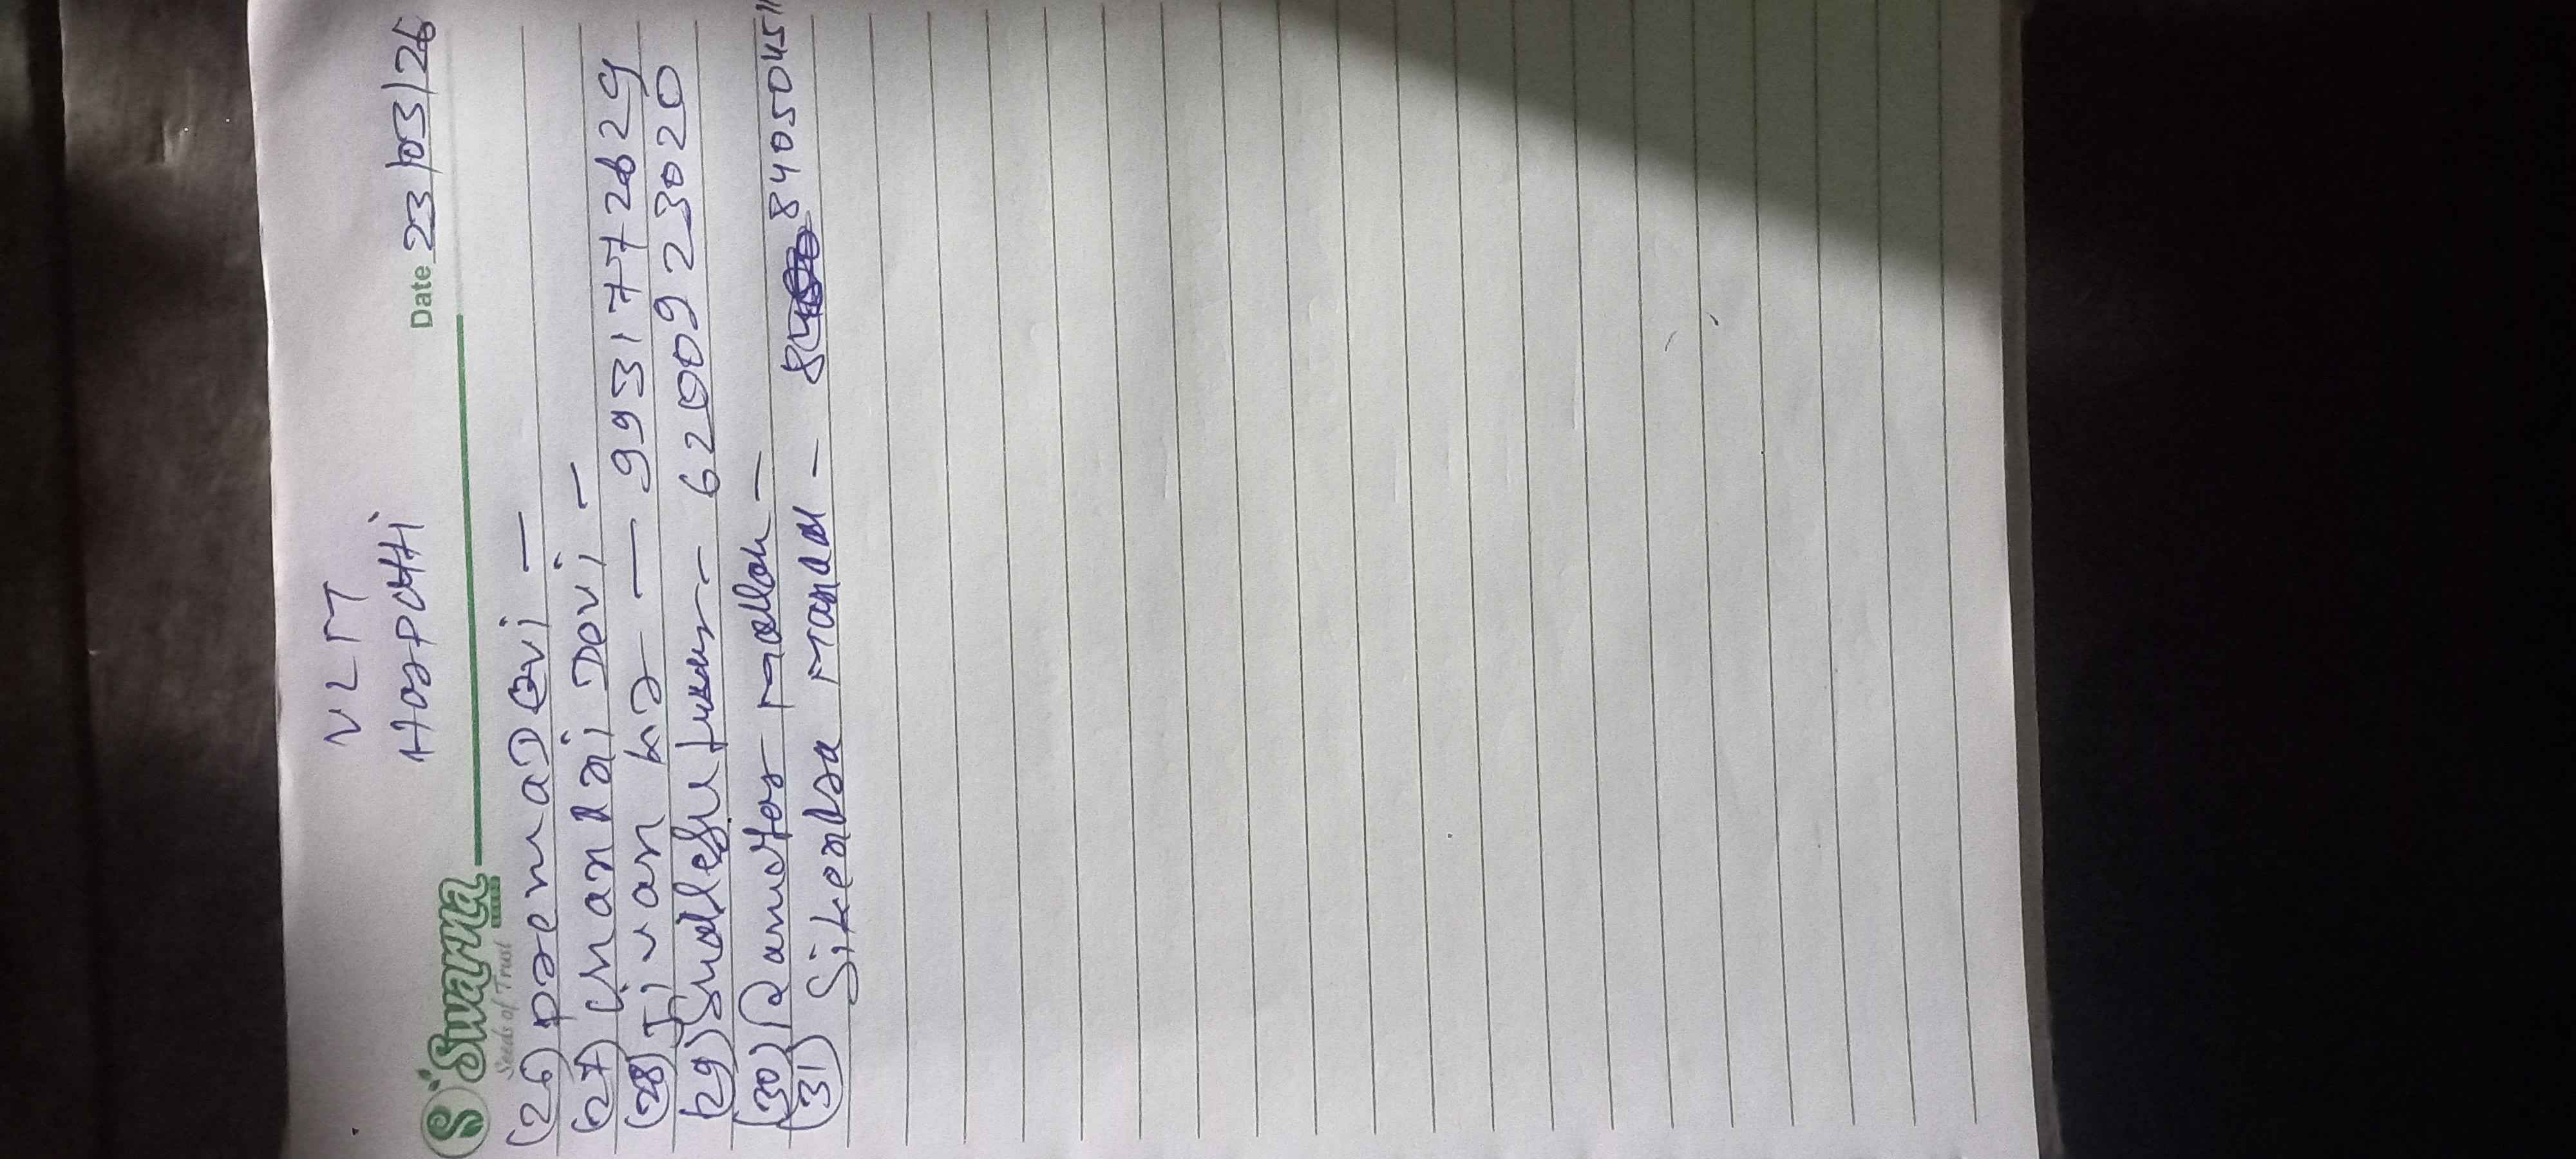 VLM
Harpatti
Swarna
Seeds of Trust
Date 23/03/26
(26) prema Devi —
(27) Chandai Devi —
(28) Jivan kr — 9931772629
(29) kumar - 6200923020
(30) Ramotar Mallah —
(31) Sikendra Mandal - 8405045